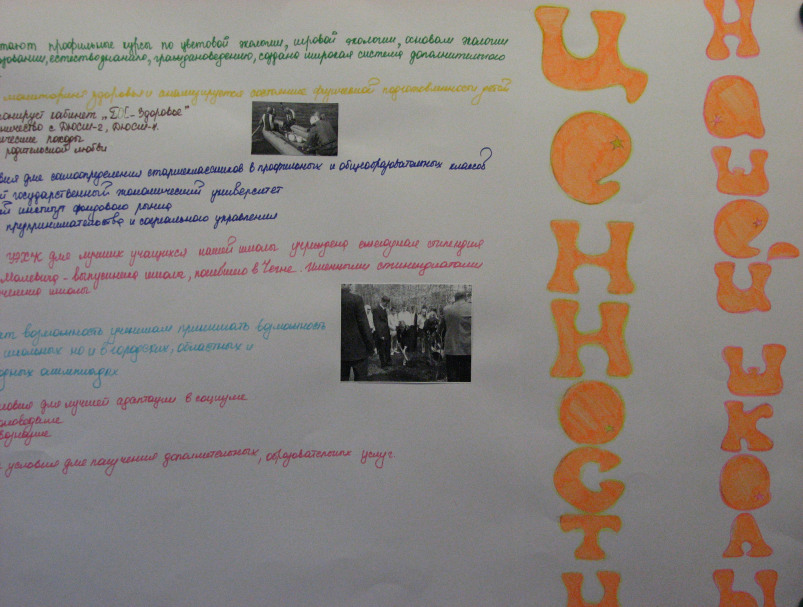 тают профильные курсы по цветовой экологии, игровой экологии, основам экологии
едовании, естествознанию, граждановедению, создана широкая система дополнительного
мониторинг здоровья и анализируется состояние физической подготовленности детей
ионирует кабинет "БОС-Здоровье"
ничество с ДЮСШ-2, ДЮСШ-4.
ические походы
родительской любви
вия для самоопределения старшеклассников в профильных и общеобразовательных классов
ий государственный экономический университет
ий институт фондового рынка
предпринимательства и социального управления
УЭХК для лучших учащихся нашей школы учреждена ежегодная стипендия
Малевича - выпускника школы, погибшего в Чечне. Именными стипендиатами
чениа школы
ает возможность учащимся принимать возможность
школьных но и в городских, областных и
одных олимпиадах
ловие для лучшей адаптации в социуме
условия для получения дополнительных, образовательных услуг
ЦЕННОСТИ
НАШЕЙ ШКОЛЫ